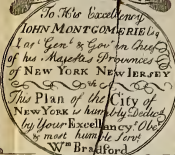 To His Excellency
IOHN MONTGOMERIE Esq
Cap.t Gen.l & Gov.r in Chief
of his Majesties Provinces
of NEW YORK NEW IERSEY
&c
This Plan of the City of
NEW YORK is humbly Dedicated
by Your Excellancy.s Obe.
& most humble Serv.t
W.m Bradford